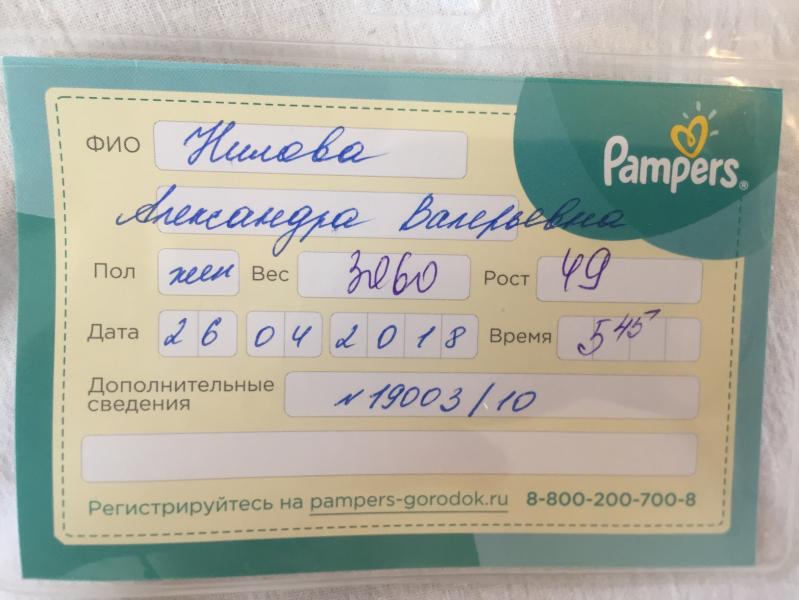 Pampers®
ФИО Нилова
Александра Валерьевна
Пол жен Вес 3060 Рост 49
Дата 26 04 2018 Время 5 45
Дополнительные сведения N 19003/10
Регистрируйтесь на pampers-gorodok.ru 8-800-200-700-8